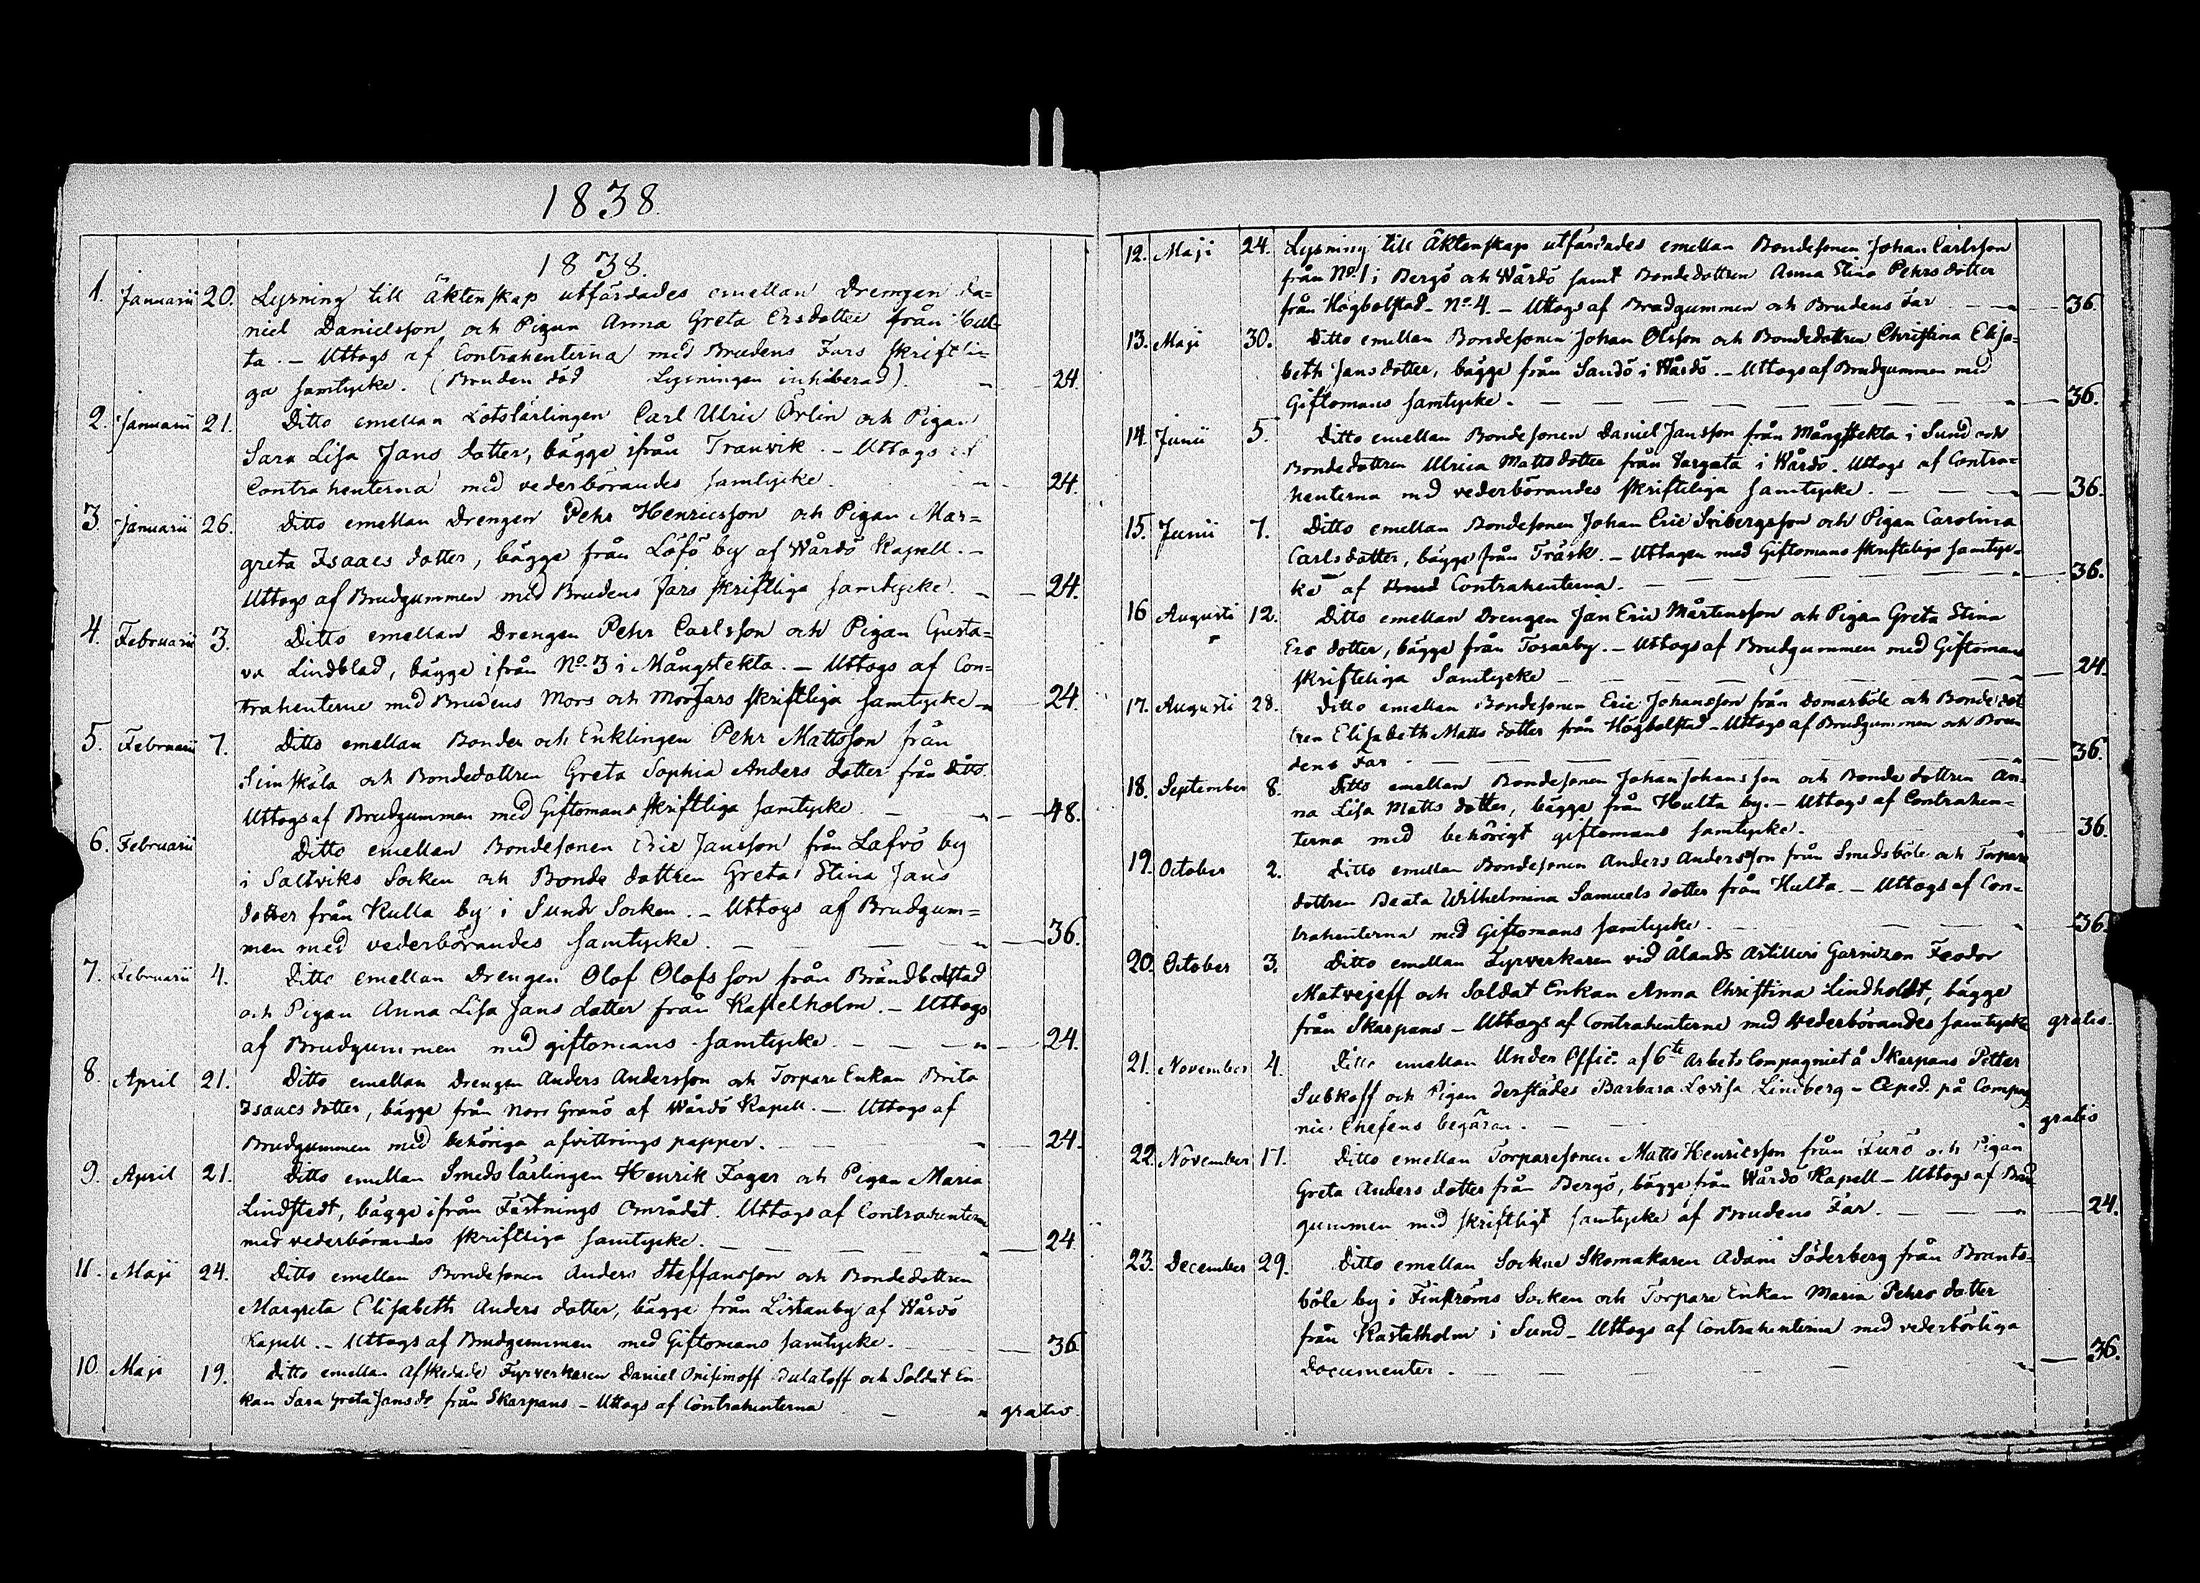 1838.
1838.
1. Januarii 20. Lysning till Äktenskap utfärdades emellan Drengen Da=
niel Danielsson och Pigan Anna Greta Ersdotter från Hul=
ta. – Uttogs af Contrahenterna med Brudens Fars skriftli=
ga samtycke. (Bruden död Lysningen inhiberad). 24.
2. Januarii 21. Ditto emellan Lotslärlingen Carl Ulric Örlin och Pigan
Sara Lisa Jans dotter, bägge ifrån Tranvik. – Uttogs af
Contrahenterna med vederbörandes samtycke. 24.
3. Januarii 26. Ditto emellan Drengen Pehr Henricsson och Pigan Mar=
greta Isaacs dotter, bägge från Löfö by af Wårdö Kapell. –
Uttogs af Brudgummen med Brudens Fars skriftliga samtycke. 24.
4. Februarii 3. Ditto emellan Drengen Pehr Carlsson och Pigan Gusta=
va Lindblad, bägge ifrån No. 3 i Mångstekta. – Uttogs af Con=
trahenterne med Brudens Mors och Morfars skriftliga samtycke 24.
5. Februarii 7. Ditto emellan Bonden och Enklingen Pehr Mattsson från
Simskäla och Bondedottren Greta Sophia Anders dotter från Ditto.
Uttogs af Brudgummen med Giftomans skriftliga samtycke 48.
6. Februarii Ditto emellan Bondesonen Eric Jansson från Lafvö by
i Saltviks Socken och Bonde dottren Greta Stina Jans
dotter från Kulla by i Sunds Socken. – Uttogs af Brudgum=
men med vederbörandes samtycke. 36.
7. Februarii 4. Ditto emellan Drengen Olof Olofsson från Brändbolstad
och Pigan Anna Lisa Jans dotter från Kastelholm. – Uttogs
af Brudgummen med giftomans samtycke. 24.
8. April 21. Ditto emellan Drengen Anders Andersson och Torpare Enkan Brita
Isaacs dotter, bägge från Norr Granö af Wårdö Kapell. – Uttogs af
Brudgummen med behöriga afvittrings papper. 24.
9. April 21. Ditto emellan Smedslärlingen Henrik Fager och Pigan Maria
Lindstedt, bägge ifrån Fästnings området. Uttogs af Contrahenterna
med vederbörandes skriftliga samtycke. 24.
11. Maji 24. Ditto emellan Bondesonen Anders Steffansson och Bondedottren
Margreta Elisabeth Anders dotter, bägge från Listanby af Wårdö
Kapell. – Uttogs af Brudgummen med Giftomans samtycke. 36
10. Maji 19. Ditto emellan Afskedade Fyrverkaren Daniel Onisimoff Bulatoff och Soldat En-
kan Sara Greta Jansdr från Skarpans – Uttogs af Contrahenterna gratis.
12. Maji 24. Lysning till Äktenskap utfärdades emellan Bondesonen Johan Carlsson
från No. 1 i Bergö och Wårdö samt Bondedottren Anna Stina Pehrs dotter
från Högbolstad No. 4. – Uttogs af Brudgummen och Brudens Far 36.
13. Maji 30. Ditto emellan Bondesonen Johan Olsson och Bondedottren Christina Elisa=
beth Jans dotter, bägge från Sandö i Wårdö. – Uttogs af Brudgummen med
Giftomans samtycke. 36.
14. Junii 5. Ditto emellan Bondesonen Daniel Jansson från Mångstekta i Sund och
Bondedottren Ulrica Mattsdotter från Vargata i Wårdö. Uttogs af Contra=
henterna med vederbörandes skriftliga samtycke. 36.
15. Junii 7. Ditto emellan Bondesonen Johan Eric Svibergsson och Pigan Carolina
Carls dotter, bägge från Träsk. – Uttagen med Giftomans skriftliga samtyc=
ke af Brud Contrahenterna. 36.
16 Augusti 12. Ditto emellan Drengen Jan Eric Mårtensson och Pigan Greta Stina
Ers dotter, bägge från Tosarby. – Uttogs af Brudgummen med Giftomans
skriftliga Samtycke 24.
17. Augusti 28. Ditto emellan Bondesonen Eric Johansson från Domarböle och Bondedot
tren Elisabeth Matts dotter från Högbolstad – Uttogs af Brudgummen och Bru
dens Far 36.
18. September 8. Ditto emellan Bondesonen Johan Johansson och Bonde dottren An=
na Lisa Matts dotter, bägge från Hulta by. – Uttogs af Contrahen=
terna med behörigt giftomans samtycke. 36.
19. October 2. Ditto emellan Bondesonen Anders Andersson från Smedsböle och Torpare
dottren Beata Wilhelmina Samuels dotter från Hulta. – Uttogs af Con=
trahenterna med Giftomans samtycke. 36.
20. October 3. Ditto emellan Fyrverkaren vid Ålands Artilleri Garnizon Feodor
Matvejeff och Soldat Enkan Anna Christina Lindholdt, bägge
från Skarpans – Uttogs af Contrahenterne med Wederbörandes samtycke gratis.
21. November 4. Ditto emellan Under Offic. af 6te Arbets Compagniet å Skarpans Petter
Subkoff och Pigan derstädes Barbara Lovisa Lindberg – Exped. på Compag
nie Chefens begäran. gratis
22. November 17. Ditto emellan Torparesonen Matts Henricsson från Furö och Pigan
Greta Anders dotter från Bergö, bägge från Wårdö Kapell – Uttogs af Brud
gummen med skriftligt samtycke af Brudens Far. 24.
23. December 29. Ditto emellan Sockne Skomakaren Adam Söderberg från Brants=
böle by i Finströms Socken och Torpare Enkan Maria Pehrs dotter
från Kastelholm i Sund – Uttogs af Contrahenterna med vederbörliga
Documenter. 36.